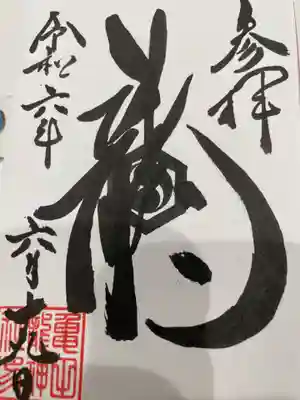 参拝
龍
令和六年
六月十九日